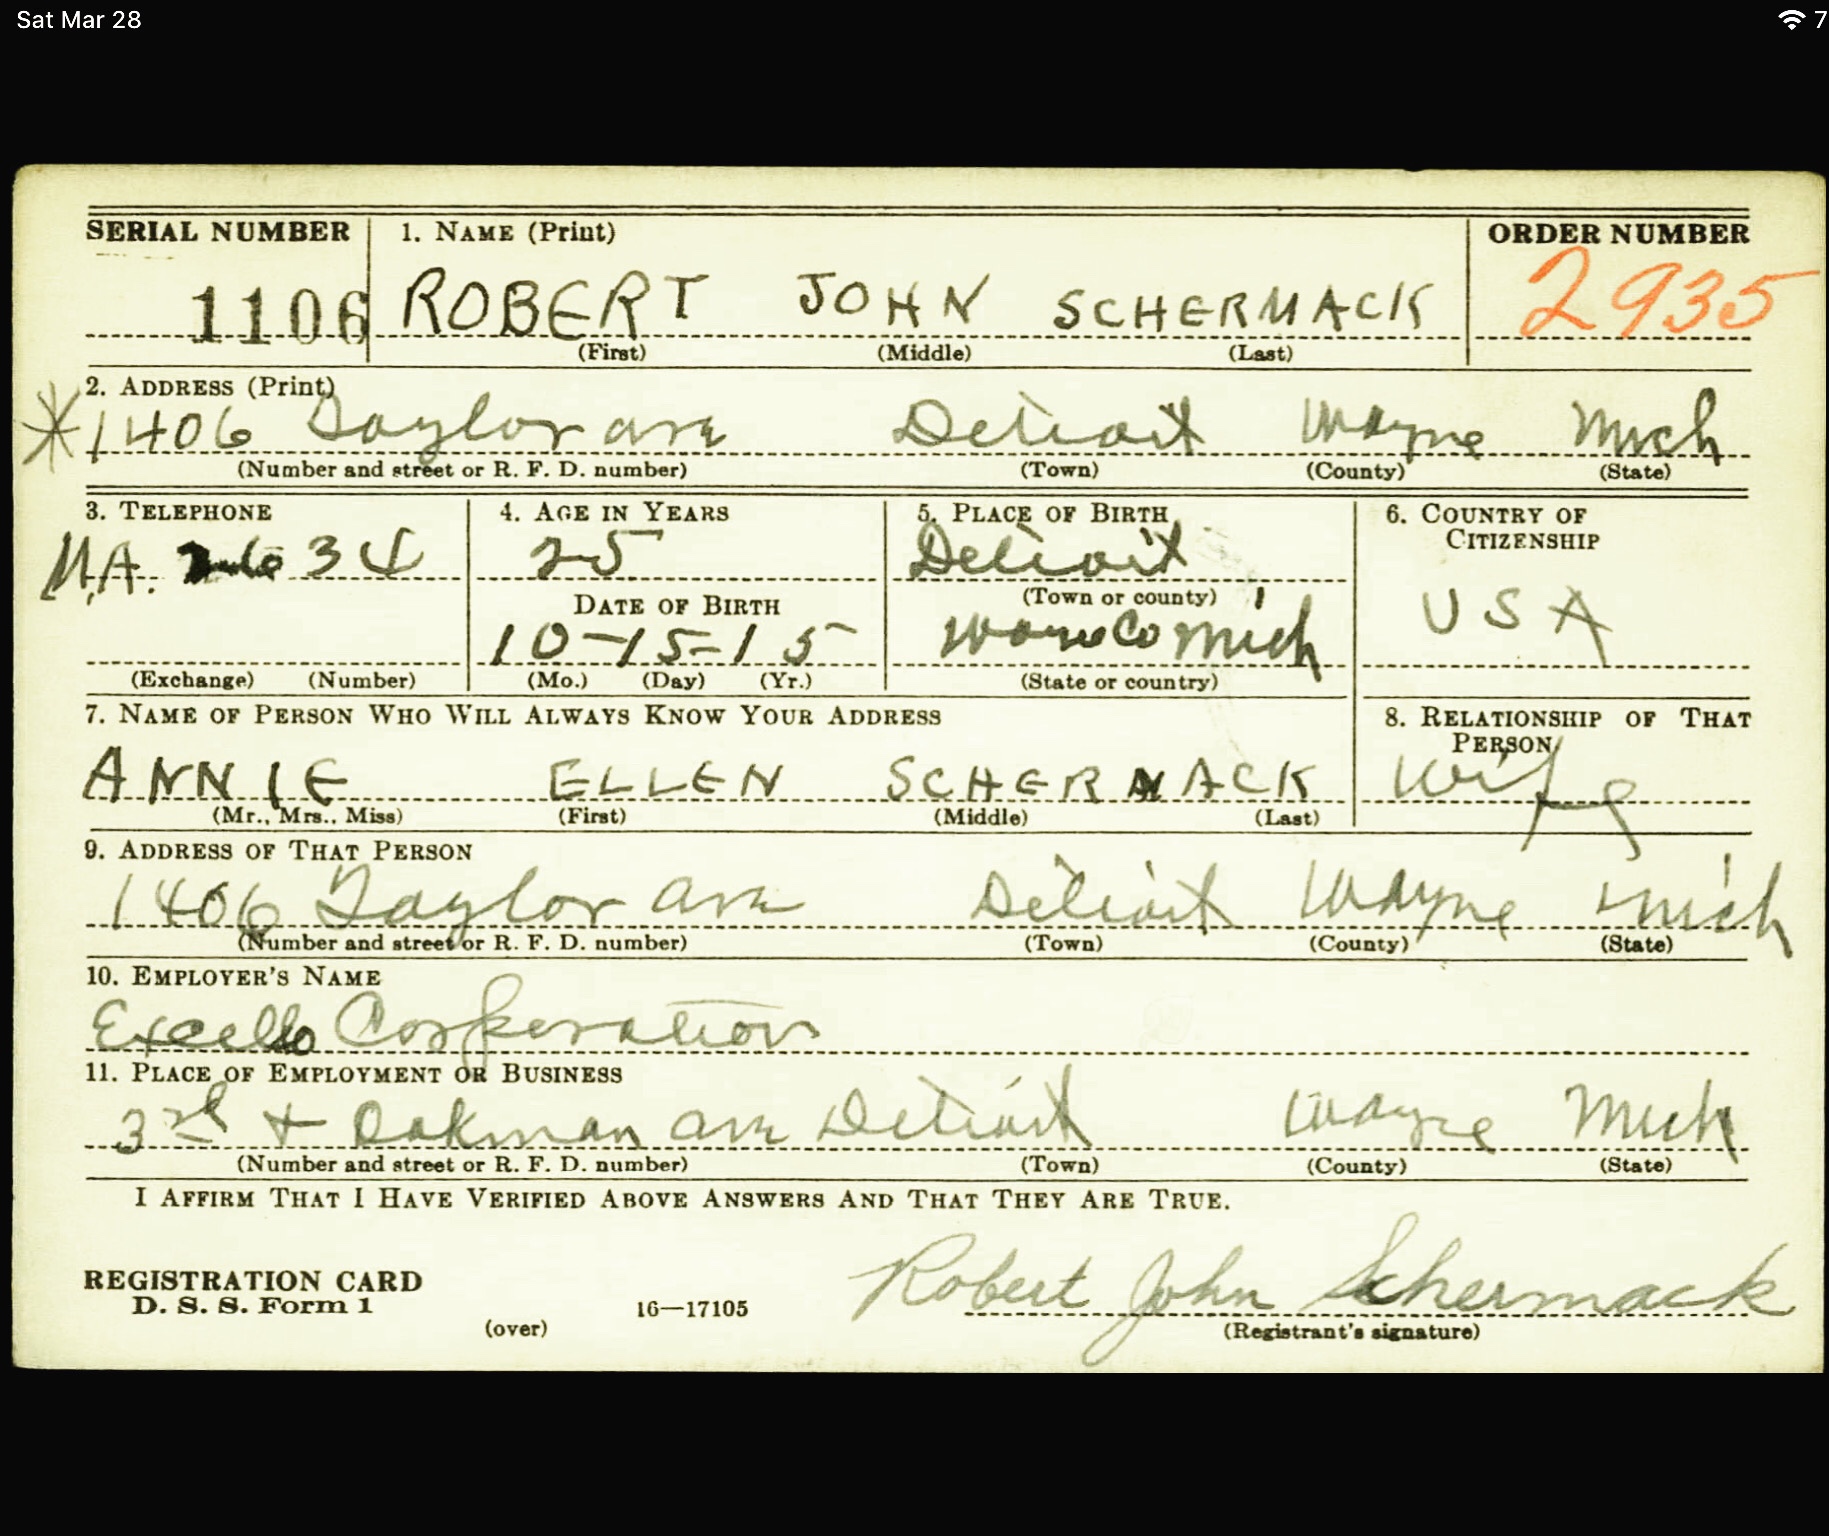 Sat Mar 28 7
SERIAL NUMBER 1. NAME (Print) ORDER NUMBER
1106 ROBERT JOHN SCHERMACK 2935
(First) (Middle) (Last)
2. ADDRESS (Print)
*1406 Taylor ave Detroit Wayne Mich
(Number and street or R. F. D. number) (Town) (County) (State)
3. TELEPHONE 4. AGE IN YEARS 5. PLACE OF BIRTH 6. COUNTRY OF CITIZENSHIP
MA. 34 25 Detroit
DATE OF BIRTH (Town or county) USA
10-15-15 Wayne Co Mich
(Exchange) (Number) (Mo.) (Day) (Yr.) (State or country)
7. NAME OF PERSON WHO WILL ALWAYS KNOW YOUR ADDRESS 8. RELATIONSHIP OF THAT PERSON
ANNIE ELLEN SCHERMACK Wife
(Mr., Mrs., Miss) (First) (Middle) (Last)
9. ADDRESS OF THAT PERSON
1406 Taylor ave Detroit Wayne Mich
(Number and street or R. F. D. number) (Town) (County) (State)
10. EMPLOYER'S NAME
Excello Corporation
11. PLACE OF EMPLOYMENT OR BUSINESS
3rd + Oakman ave Detroit Wayne Mich
(Number and street or R. F. D. number) (Town) (County) (State)
I AFFIRM THAT I HAVE VERIFIED ABOVE ANSWERS AND THAT THEY ARE TRUE.
REGISTRATION CARD
D. S. S. Form 1
(over) 16—17105
Robert John Schermack
(Registrant's signature)